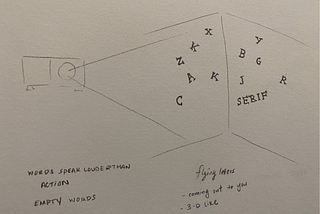 X
Y
K
B
Z
G
A
K
J
R
C
SERIF
WORDS SPEAK LOUDER THAN
ACTION
EMPTY WORDS
flying letters
- coming out to you
- 3-D LIKE